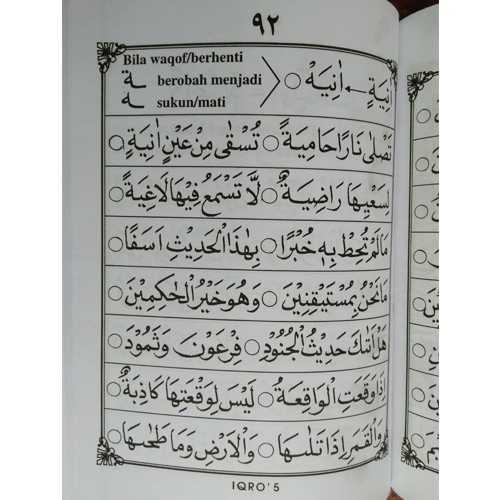 ٩٢
Bila waqof/berhenti
ـة berobah menjadi
ـه sukun/mati
اٰنِيَةٍ ← اٰنِيَهْ ○
تَصْلٰى نَارًا حَامِيَةً ○ تُسْقٰى مِنْ عَيْنٍ اٰنِيَةٍ ○
لِسَعْيِهَا رَاضِيَةٌ ○ لَا تَسْمَعُ فِيْهَا لَاغِيَةً ○
مَا لَمْ تُحِطْ بِهٖ خُبْرًا ○ بِهٰذَا الْحَدِيْثِ اَسَفًا ○
مَا نَحْنُ بِمُسْتَيْقِنِيْنَ ○ وَهُوَ خَيْرُ الْحٰكِمِيْنَ ○
هَلْ اَتٰىكَ حَدِيْثُ الْجُنُوْدِ ○ فِرْعَوْنَ وَثَمُوْدَ ○
اِذَا وَقَعَتِ الْوَاقِعَةُ ○ لَيْسَ لِوَقْعَتِهَا كَاذِبَةٌ ○
وَالْقَمَرِ اِذَا تَلٰىهَا ○ وَالْاَرْضِ وَمَا طَحٰىهَا ○
IQRO'5